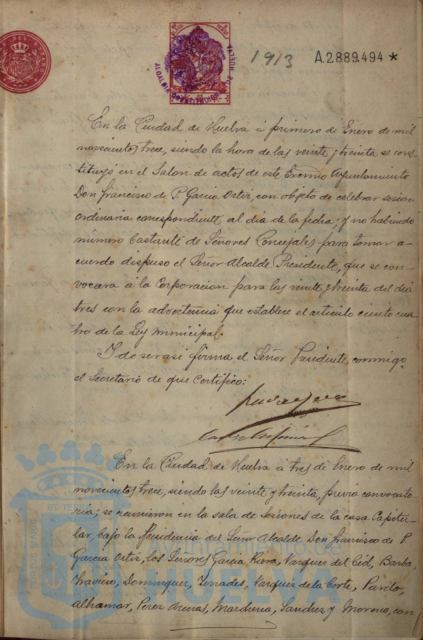 1913 A.2889.494 *
En la Ciudad de Huelva á primero de Enero de mil
novecientos trece, siendo la hora de las veinte y treinta, se cons-
tituyó en el Salon de actos de este Excmo Ayuntamiento
Don Francisco de P. Garcia Ortiz, con objeto de celebrar sesion
ordinaria correspondiente, al dia de la fecha; y no habiendo
número bastante de Señores Concejales para tomar a-
cuerdo dispuso el Señor Alcalde Presidente, que se con-
vocara á la Corporacion para las veinte y treinta del dia
tres con la advertencia que establece el articulo ciento cua-
tro de la Ley municipal.
Y de ser asi firma el Señor Presidente, conmigo
el Secretario de que Certifico:
En la Ciudad de Huelva á tres de Enero de mil
novecientos trece, siendo las veinte y treinta, previa convocato-
ria; se reunieron en la sala de Sesiones de la casa Capitu-
lar, bajo la Presidencia del Señor Alcalde Don Francisco de P.
Garcia Ortiz, los Señores Garcia, Vazquez del Cid, Barba,
Dominguez, Vazquez de la Corte, Pardo,
Alhamar, Perez Sanchez y Moreno, con